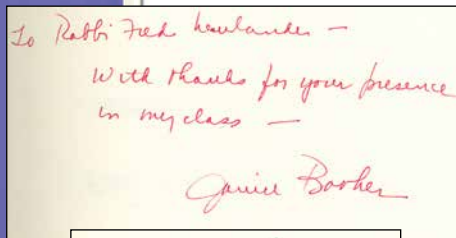 To Rabbi Fred Neulander —
With thanks for your presence
in my class —
Janice Booker